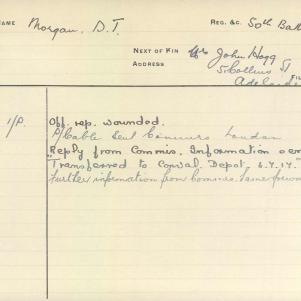 NAME Morgan, D.T. REG. &C. 50th Bat
NEXT OF KIN Mr John Hogg
ADDRESS 5 Collins St
Adelaide
1/P. Off. rep. wounded.
P/Cable Sent Commrs London
"Reply from Commis. Information
"Transferred to Conval. Depot. 6.7.17."
Further information from Commis. same